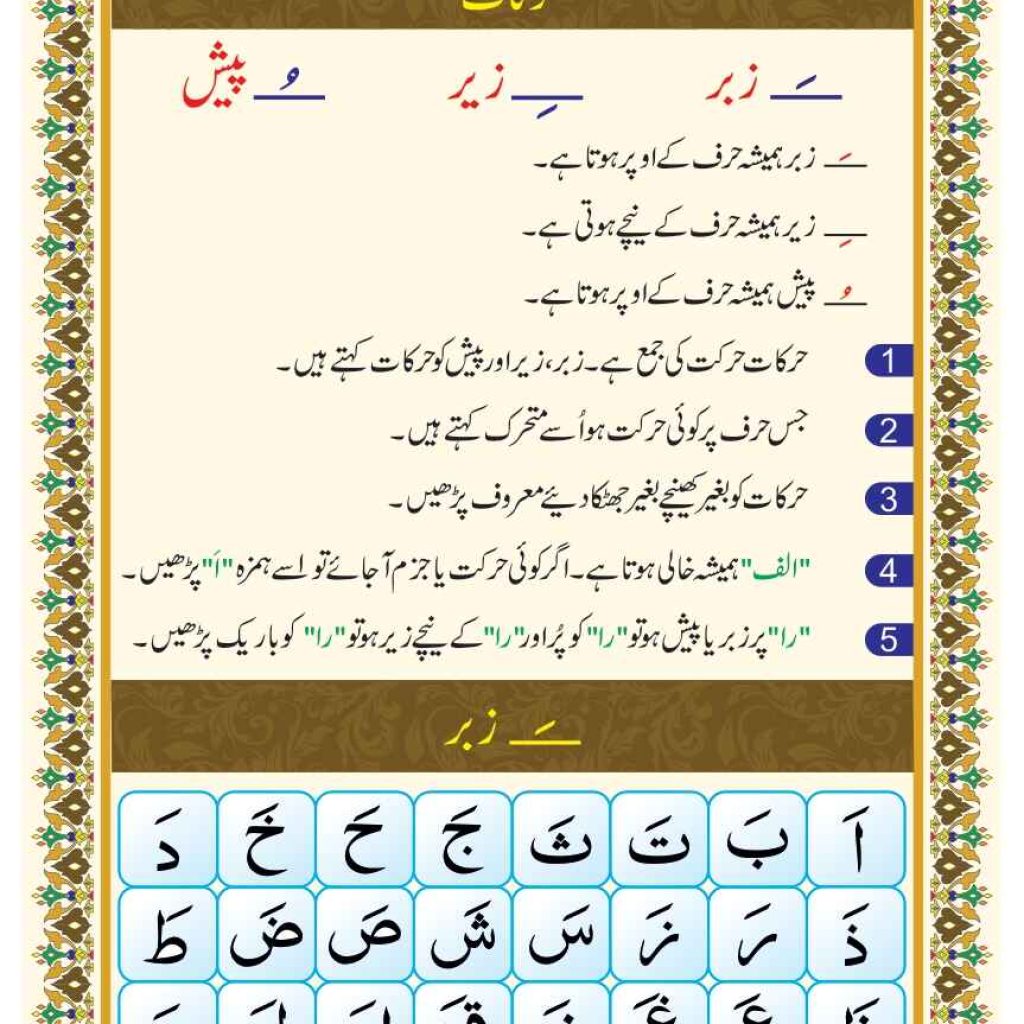 ـَـ زبر ـِـ زیر ـُـ پیش
ـَـ زبر ہمیشہ حرف کے اوپر ہوتا ہے۔
ـِـ زیر ہمیشہ حرف کے نیچے ہوتی ہے۔
ـُـ پیش ہمیشہ حرف کے اوپر ہوتا ہے۔
1 حرکات حرکت کی جمع ہے۔ زبر، زیر اور پیش کو حرکات کہتے ہیں۔
2 جس حرف پر کوئی حرکت ہو اُسے متحرک کہتے ہیں۔
3 حرکات کو بغیر کھینچے بغیر جھٹکا دیئے معروف پڑھیں۔
4 "الف" ہمیشہ خالی ہوتا ہے۔ اگر کوئی حرکت یا جزم آ جائے تو اسے ہمزہ "اَ" پڑھیں۔
5 "را" پر زبر یا پیش ہو تو "را" کو پُر اور "را" کے نیچے زیر ہو تو "را" کو باریک پڑھیں۔
ـَـ زبر
اَ بَ تَ ثَ جَ حَ خَ دَ
ذَ رَ زَ سَ شَ صَ ضَ طَ